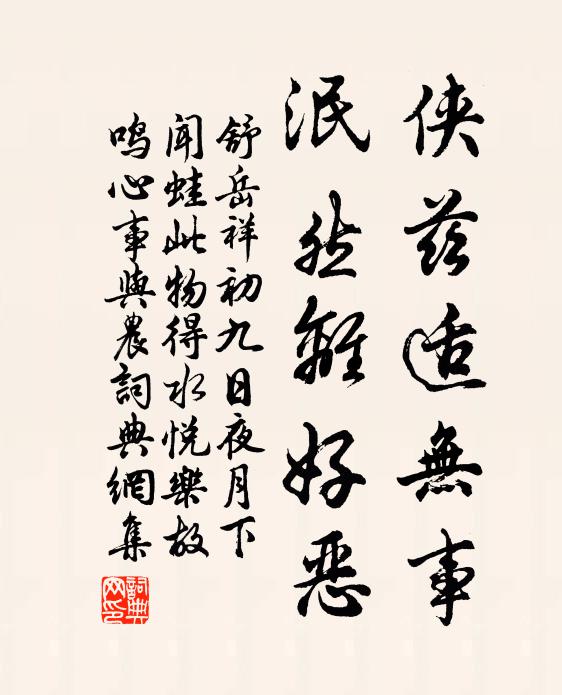 侠兹适無事
泯然離好恶
舒岳祥初九日夜月下
闻蛙此物得水悦樂故
鸣心事與農詞典網集
詞典网印